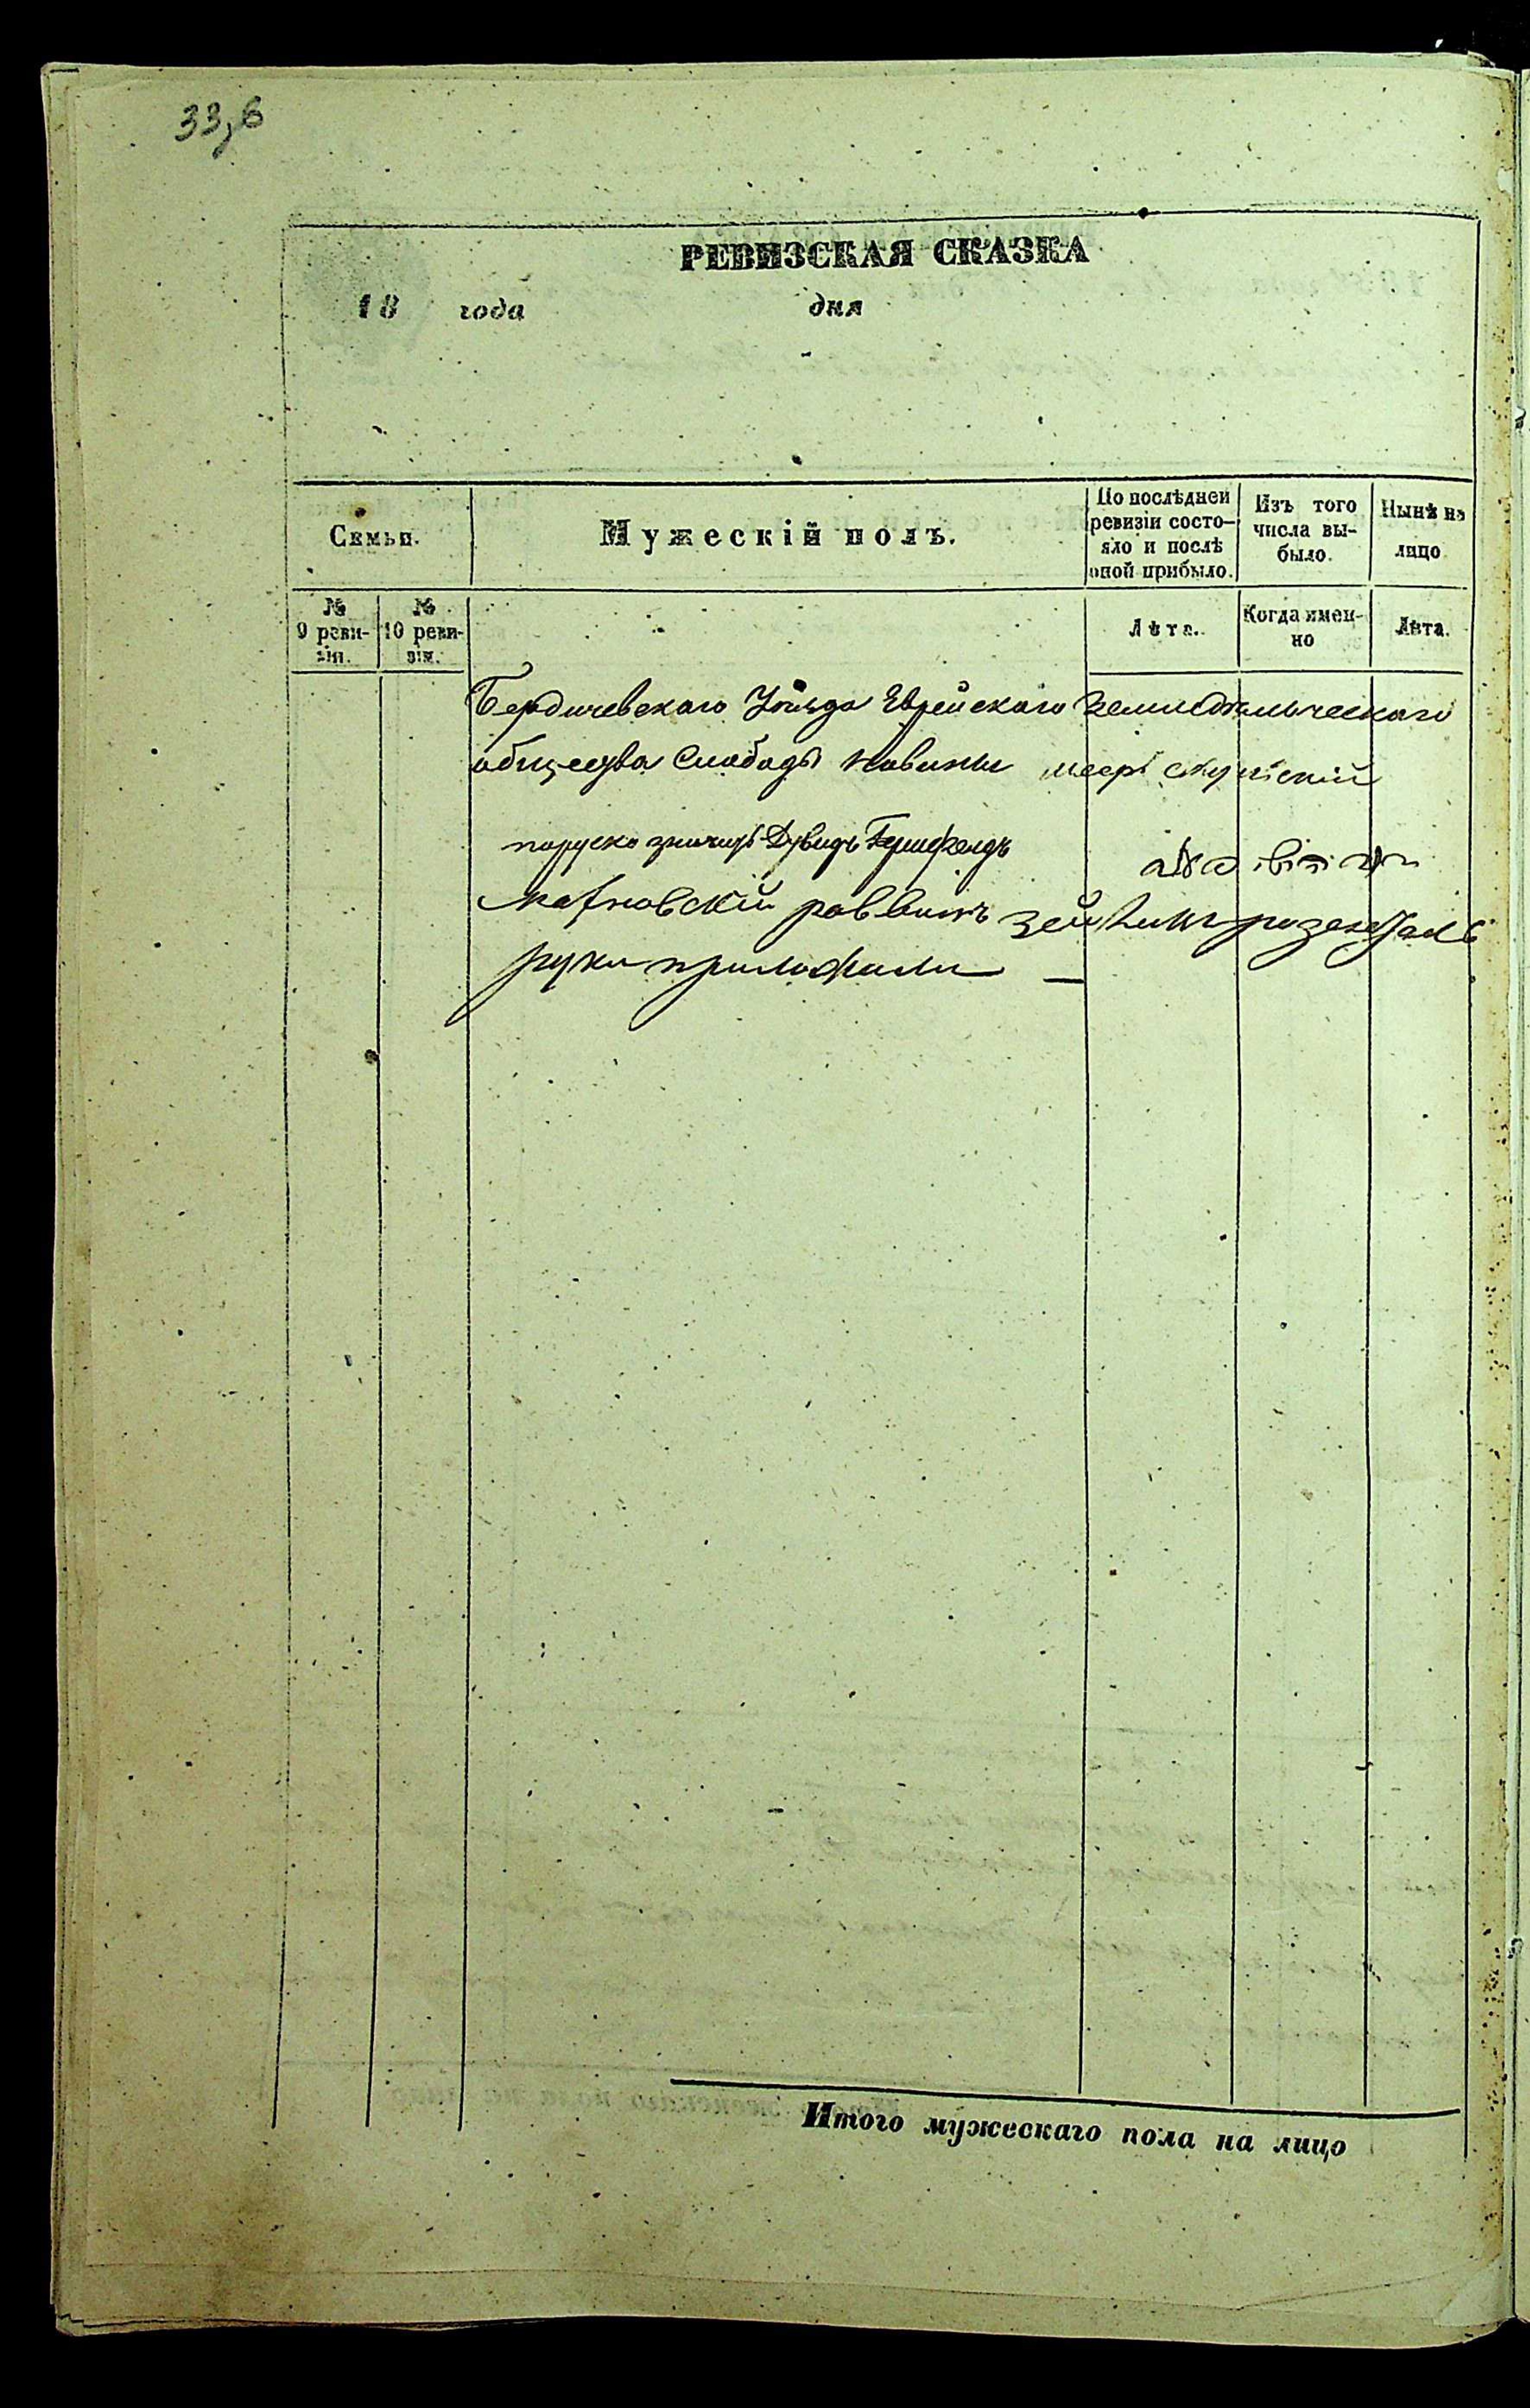 33,б
РЕВИЗСКАЯ СКАЗКА
18 года дня
Семьи.
Мужескій полъ.
По послѣдней ревизіи состо-
яло и послѣ
оной прибыло.
Изъ того
числа вы-
было.
Нынѣ на
лицо
№
9 реви-
зіи.
№
10 реви-
зіи.
Лѣта.
Когда имен-
но
Лѣта.
Бердичевскаго Уѣзда Еврейскаго Земледѣльческаго
общества Слободы Новины меер
поруско значитъ Дувидъ
Махновскій раввинъ
руки приложили —
Итого мужескаго пола на лицо